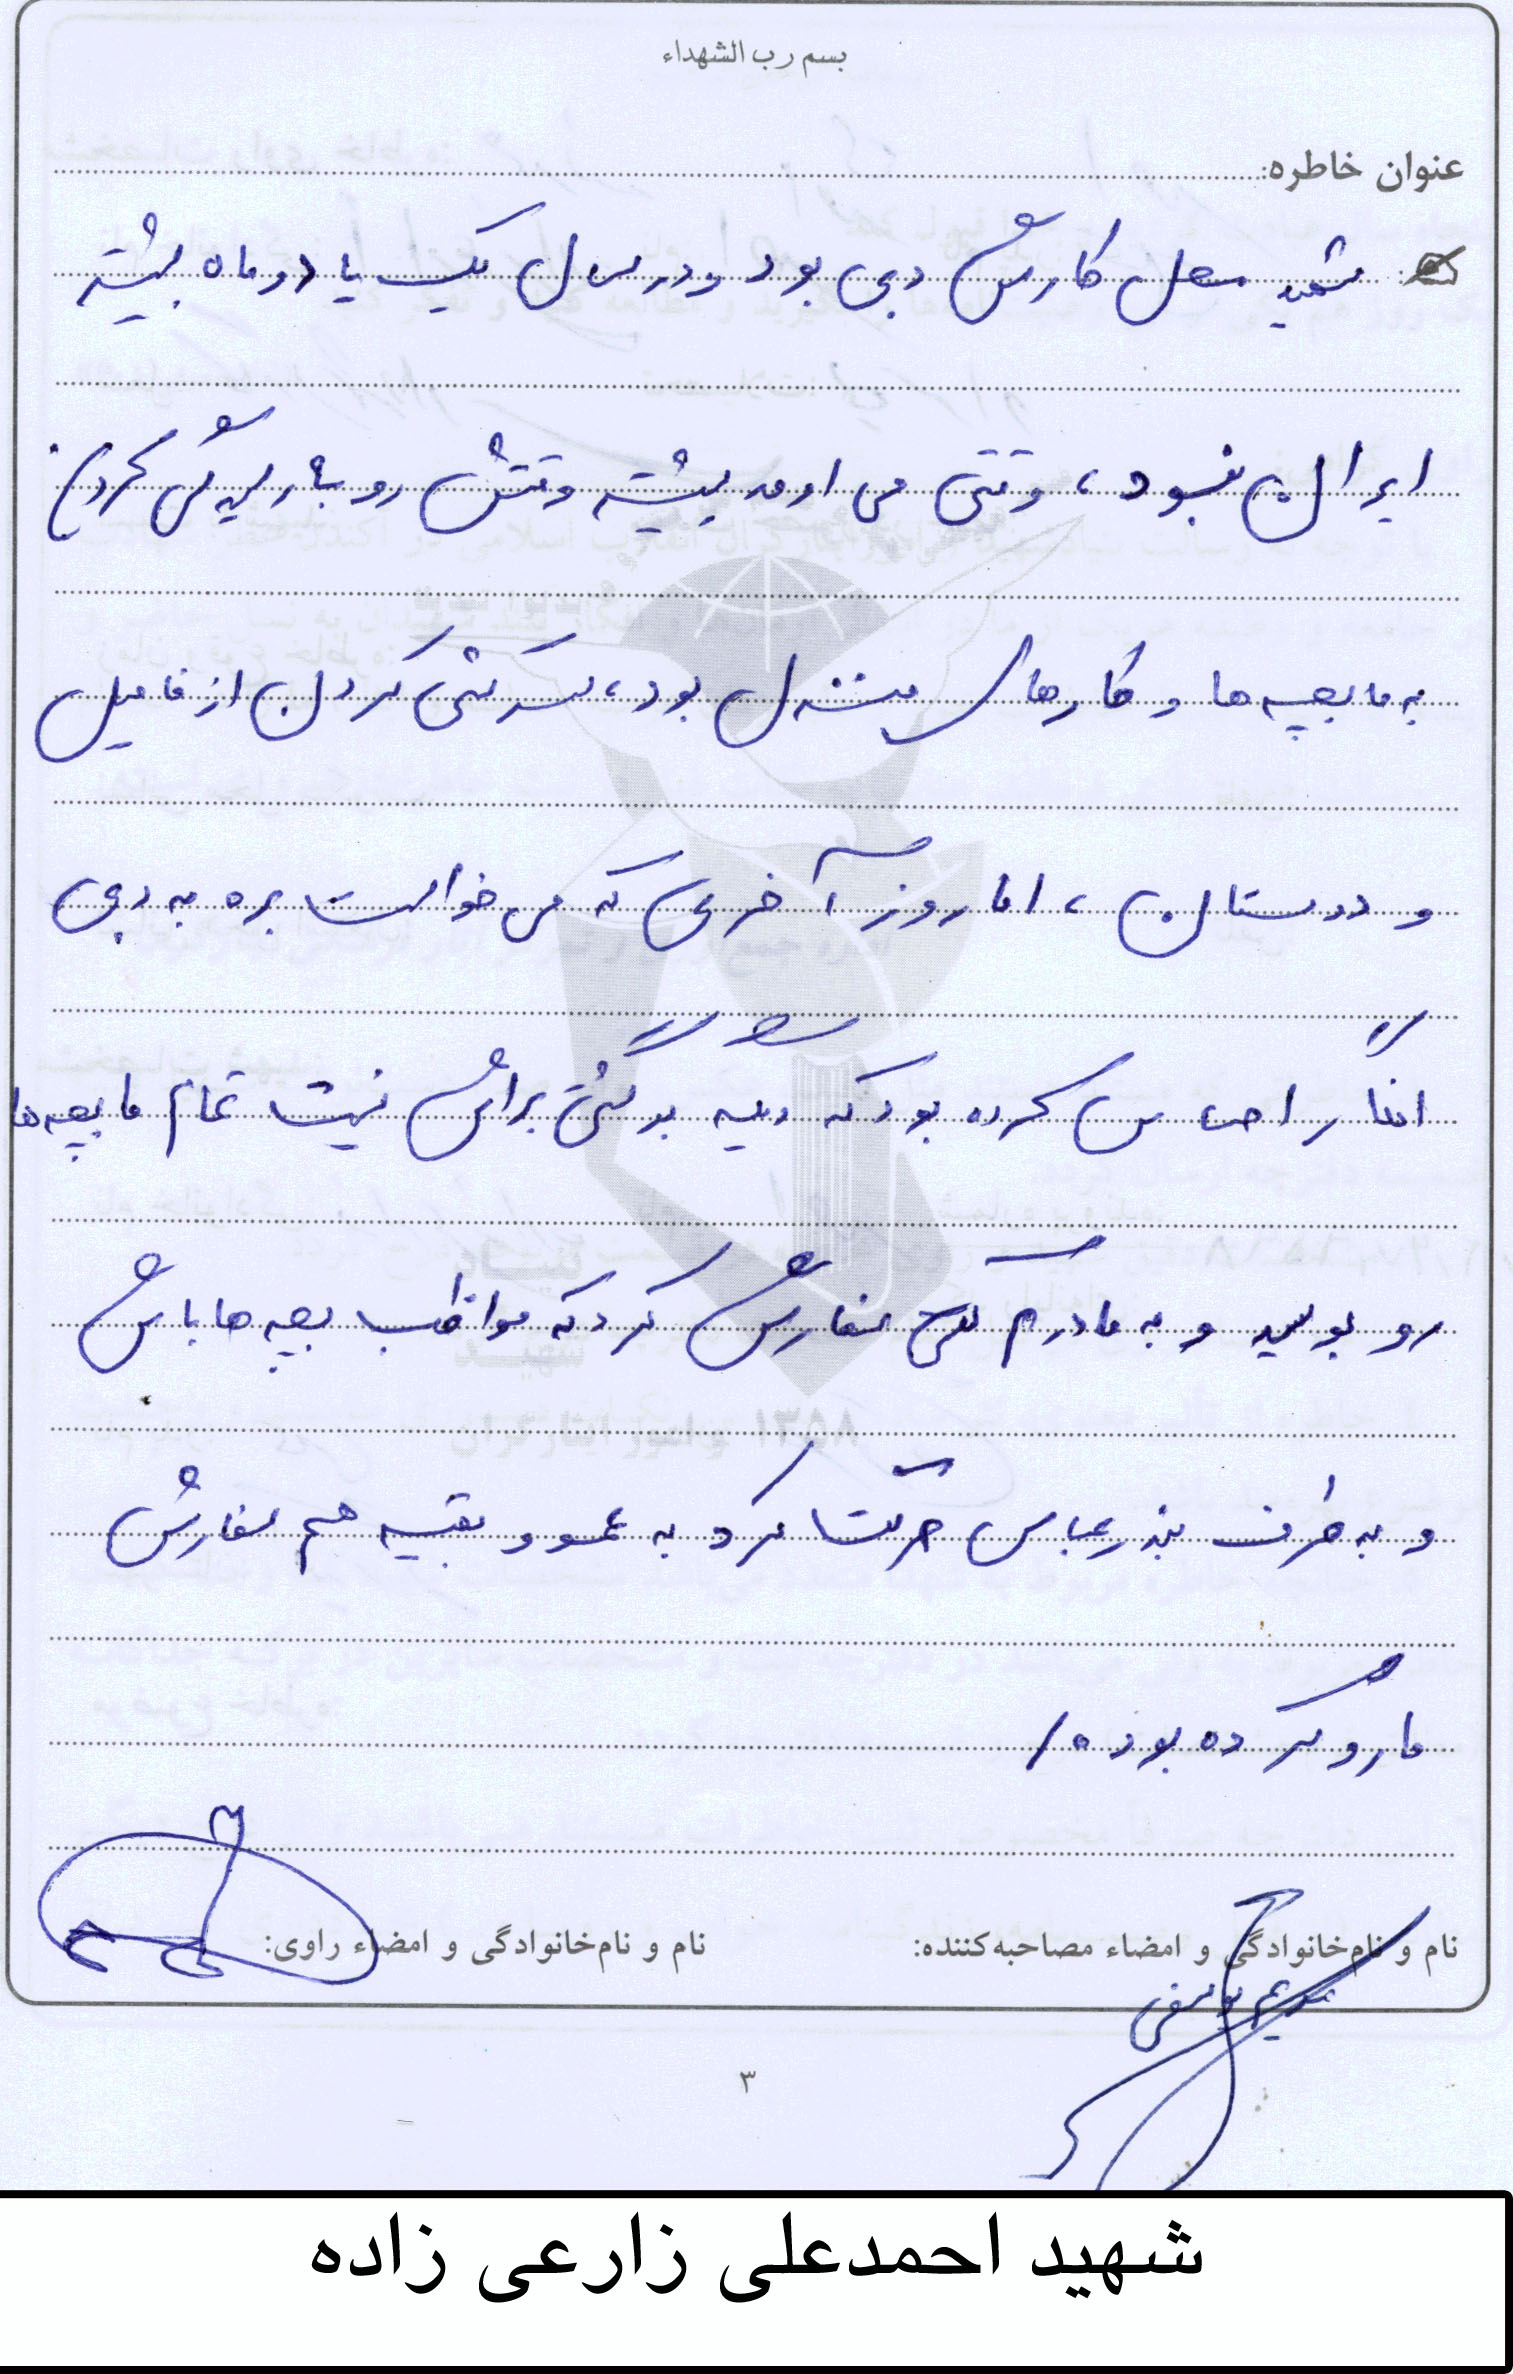 بسم رب الشهداء
عنوان خاطره:
شهید محل کارش دبی بود و در سال یک یا دو ماه بیشتر
ایران نبود، وقتی می اومد بیشتر وقتش رو رسیدگی کردن
به ما بچه ها و کارهای منزل بود، سرکشی کردن از فامیل
و دوستان، اما روز آخری که می خواست بره به دبی
انگار احساس کرده بود که دیگه برگشتی براش نیست تمام ما بچه ها
رو بوسید و به مادرم سفارش کرد که مواظب بچه ها باش
و به طرف بندرعباس حرکت کرد به عمو و بقیه هم سفارش
ما رو کرده بود ه/
نام و نام‌خانوادگی و امضاء مصاحبه‌کننده:
نام و نام‌خانوادگی و امضاء راوی:
مریم یوسفی
۳
شهید احمدعلی زارعی زاده